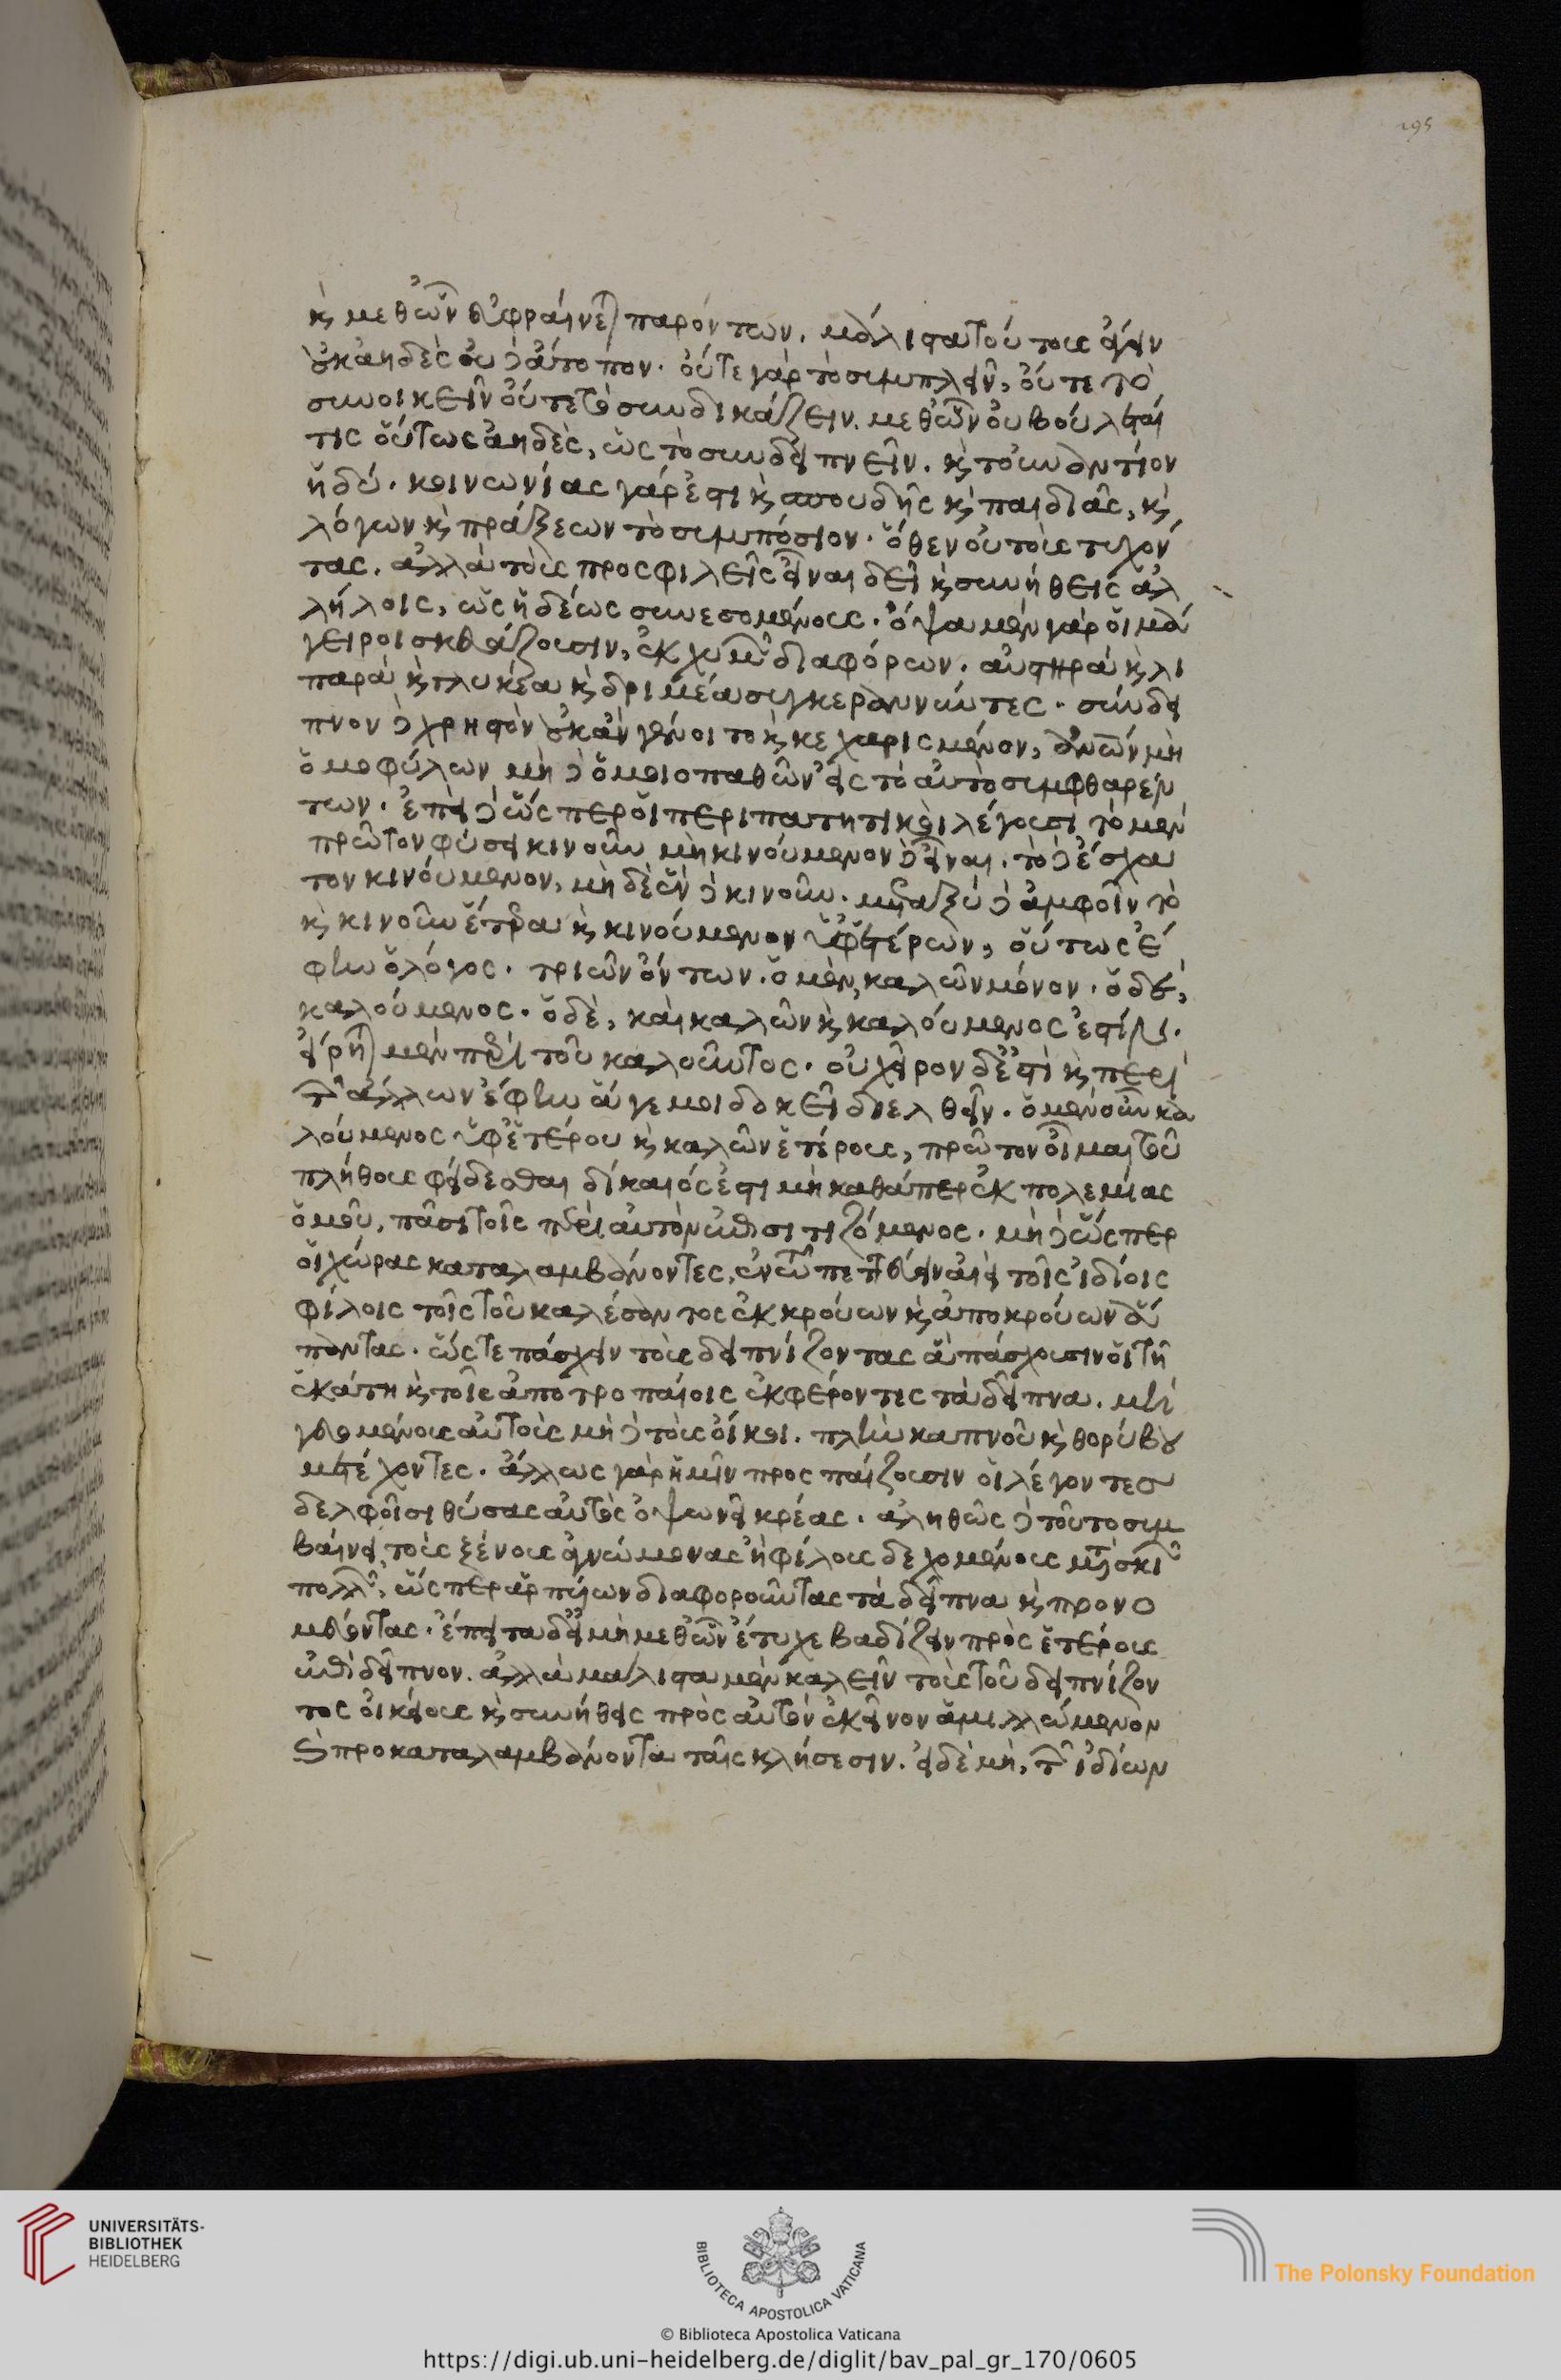 195
καὶ μεθ' ὧν εὐφραίνεται παρόντων. μάλιστα τούτους ἄγειν
οὐκ ἀηδὲς οὐδ' ἄτοπον. οὔτε γὰρ τὸ συμπλεῖν, οὔτε τὸ
συνοικεῖν οὔτε τὸ συνδικάζειν. μεθ' ὧν οὐ βούλεταί
τις οὕτως ἀηδὲς, ὡς τὸ συνδειπνεῖν. καὶ τοὐναντίον
ἡδύ. κοινωνίας γάρ ἐστι καὶ σπουδῆς καὶ παιδιᾶς, καὶ
λόγων καὶ πράξεων τὸ συμπόσιον. ὅθεν οὐ τοὺς τυχόν
τας. ἀλλὰ τοὺς προσφιλεῖς εἶναι δεῖ καὶ συνήθεις ἀλ
λήλοις, ὡς ἡδέως συνεσομένους. ὄψα μὲν γὰρ οἱ μά
γειροι σκευάζουσιν, ἐκ χυμῶν διαφόρων. αὐστηρὰ καὶ λι
παρὰ καὶ γλυκέα καὶ δριμέα συγκεραννύντες. σύνδει
πνον δὲ χρηστὸν οὐκ ἂν γένοιτο καὶ κεχαρισμένον, ἀνθρώπων μὴ
ὁμοφύλων μὴ δὲ ὁμοιοπαθῶν εἰς τὸ αὐτὸ συμφθαρέν
των. ἐπεὶ δὲ ὥσπερ οἱ περιπατητικοὶ λέγουσι τὸ μὲν
πρῶτον φύσει κινοῦν μὴ κινούμενον δὲ εἶναι. τὸ δὲ ἔσχα
τον κινούμενον, μὴ δὲ ἓν δὲ κινοῦν. μεταξὺ δὲ ἀμφοῖν τὸ
καὶ κινοῦν ἕτερα καὶ κινούμενον ὑφ' ἑτέρων, οὕτως ἔ
φην ὁ λόγος. τριῶν ὄντων. ὁ μὲν, καλῶν μόνον. ὁ δέ,
καλούμενος. ὁ δὲ, καὶ καλῶν καὶ καλούμενος ἐστίν.
εἴρηται μὲν περὶ τοῦ καλοῦντος. οὐ χεῖρον δέ ἐστι καὶ περὶ
τῶν ἄλλων ἔφην ἅ γε μοι δοκεῖ διελθεῖν. ὁ μὲν οὖν κα
λούμενος ὑφ' ἑτέρου καὶ καλῶν ἑτέρους, πρῶτον οἶμαι τοῦ
πλήθους φείδεσθαι δίκαιός ἐστι μὴ καθάπερ ἐκ πολεμίας
ὁμοῦ, πᾶσι τοῖς περὶ αὐτὸν ἐπισιτιζόμενος. μὴ δὲ ὥσπερ
οἱ χώρας καταλαμβάνοντες, ἐν τῷ πεττεύειν ἀεὶ τοῖς ἰδίοις
φίλοις τοῖς τοῦ καλέσαντος ἐκκρούων καὶ ἀποκρούων ἅ
παντας. ὥστε πάσχειν τοὺς δειπνίζοντας ἃ πάσχουσιν οἱ τῇ
ἑκάτῃ καὶ τοῖς ἀποτροπαίοις ἐκφέροντες τὰ δεῖπνα. μὴ
γευομένους αὐτοὺς μὴ δὲ τοὺς οἴκοι. πλὴν καπνοῦ καὶ θορύβου
μετέχοντες. ἄλλως γὰρ ἡμῖν προσπαίζουσιν οἱ λέγοντες
δελφοῖσι θύσας αὐτὸς ὀψωνεῖ κρέας. ἀληθῶς δὲ τοῦτο συμ
βαίνει τοὺς ξένους ἀγνώμονας ἢ φίλους δεχομένους μετὰ σκιῶν
πολλῶν, ὥσπερ ἁρπυιῶν διαφοροῦντας τὰ δεῖπνα καὶ προνο
μεύοντας. ἔπειτα δεῖ μὴ μεθ' ὧν ἔτυχε βαδίζειν πρὸς ἑτέρους
ἐπὶ δεῖπνον. ἀλλὰ μάλιστα μὲν καλεῖν τοὺς τοῦ δειπνίζον
τος οἰκείους καὶ συνήθεις πρὸς αὐτὸν ἐκεῖνον ἁμιλλώμενον
καὶ προκαταλαμβάνοντα ταῖς κλήσεσιν. εἰ δὲ μὴ, τῶν ἰδίων
UNIVERSITÄTS-
BIBLIOTHEK
HEIDELBERG
BIBLIOTECA APOSTOLICA VATICANA
The Polonsky Foundation
© Biblioteca Apostolica Vaticana
https://digi.ub.uni-heidelberg.de/diglit/bav_pal_gr_170/0605